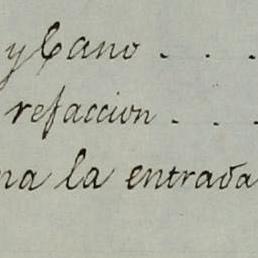 y Cano . . .
refaccion . . .
na la entrada